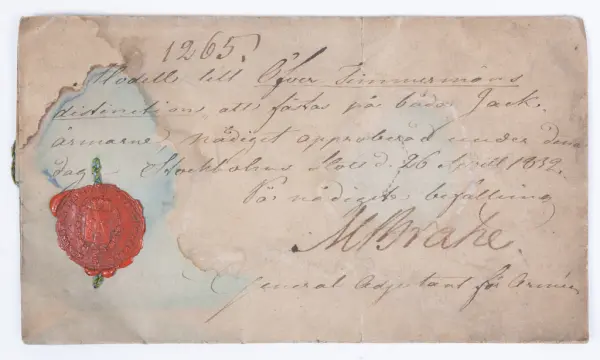 1265.
Modell till Öfver Timmermäns
distinction, att fästas på båda Jack-
ärmarne, nådigst approberad under denna
dag. Stockholms Slott d. 26 April 1832.
På nådigste befallning
M Brahe.
General Adjutant för Armén